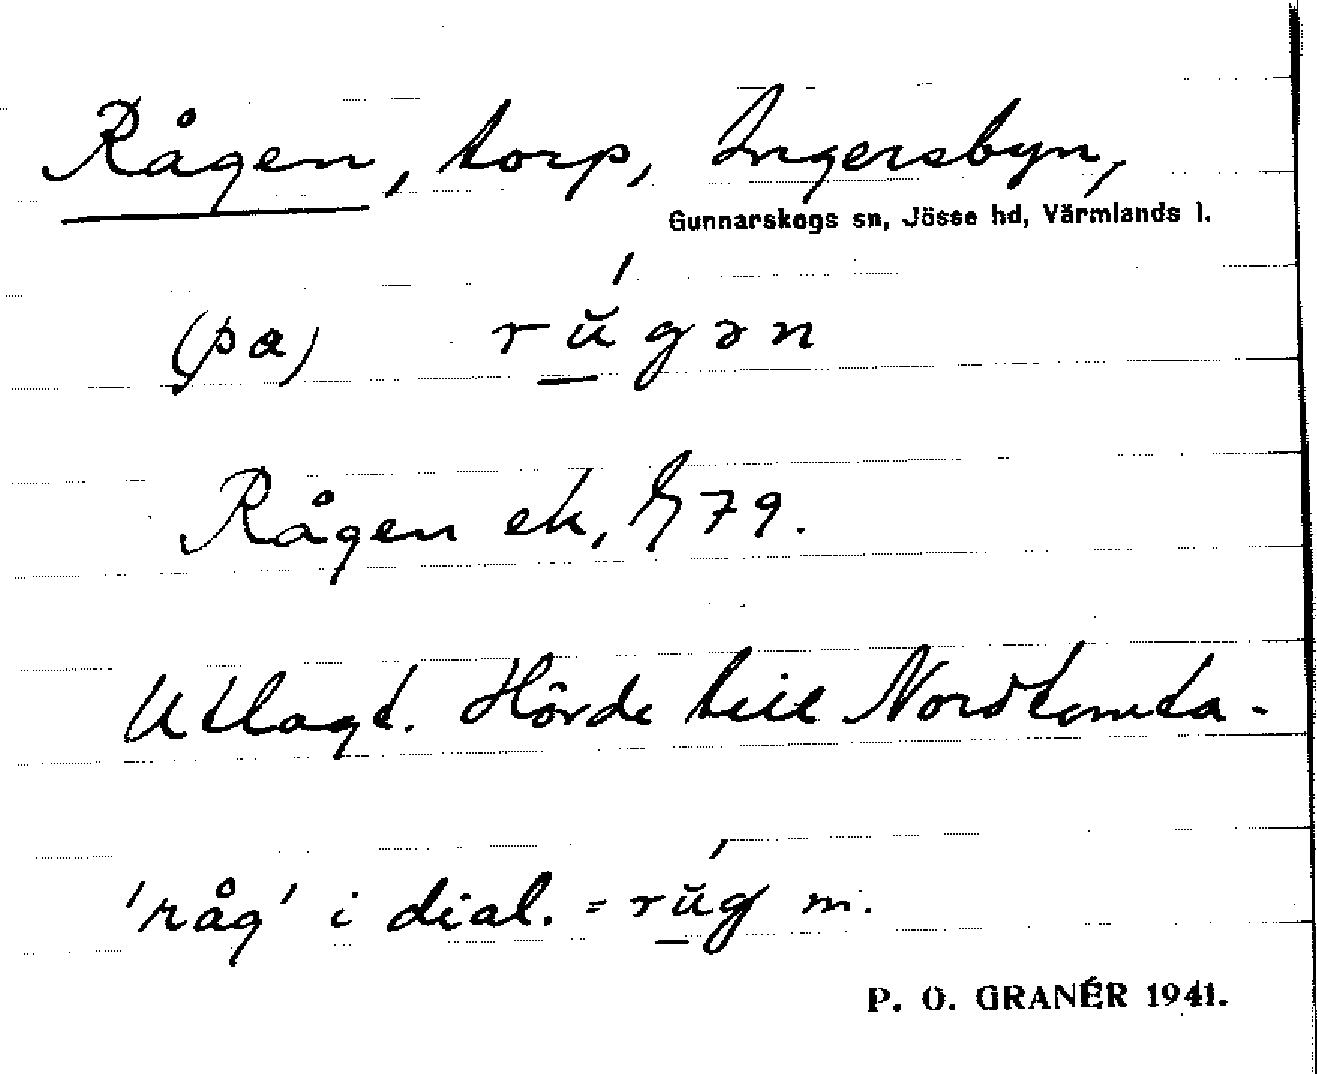 Rågen, torp, Ingersbyn,
Gunnarskogs sn, Jösse hd, Värmlands l.
(pa) rŭ́gən
Rågen ek, 79.
Utlagt. Hörde till Nordtomta.
'råg' i dial. = rŭ́g m.
P. O. GRANÉR 1941.